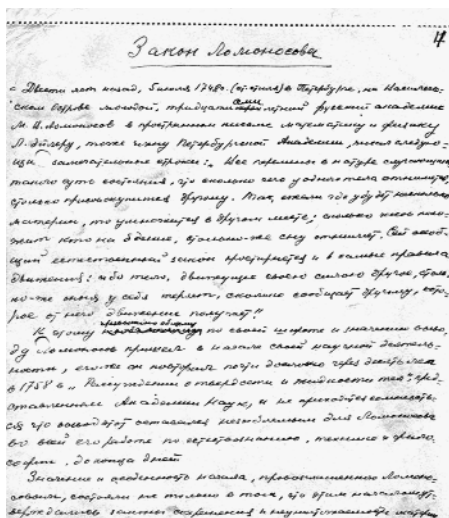 4
Закон Ломоносова
Двести лет назад, 5 июля 1748 г. (ст. стиля) в Петербурге, на Васильев-
ском острове молодой, тридцати семи летний русский академик
М. В. Ломоносов в пространном письме математику и физику
Л. Эйлеру, тоже члену Петербургской Академии, писал следую-
щие замечательные строки: "Все перемены в натуре случающиеся
такого суть состояния, что сколько чего у одного тела отнимется,
столько присовокупится к другому. Так, ежели где убудет несколько
материи, то умножится в другом месте; сколько часов поло-
жит кто на бдение, столько же сну отнимет. Сей всеоб-
щий естественный закон простирается и в самые правила
движения: ибо тело, движущее своею силою другое, столь-
ко же оныя у себя теряет, сколько сообщает другому, кото-
рое от него движение получает".
К этому по своей широте и значению выво-
ду Ломоносов пришел в начале своей научной деятель-
ности, его же он повторил почти дословно через десять лет
в 1758 в "Рассуждении о твердости и жидкости тел" пред-
ставленном Академии Наук, и не приходится сомневать-
ся что вывод этот оставался незыблемым для Ломоносова
во всей его работе по естествознанию, технике и фило-
софии, до конца дней
Значение и особенность начала, провозглашенного Ломоно-
совым, состояли не только в том, что этим началом ут-
верждались законы сохранения и неуничтожаемости материи